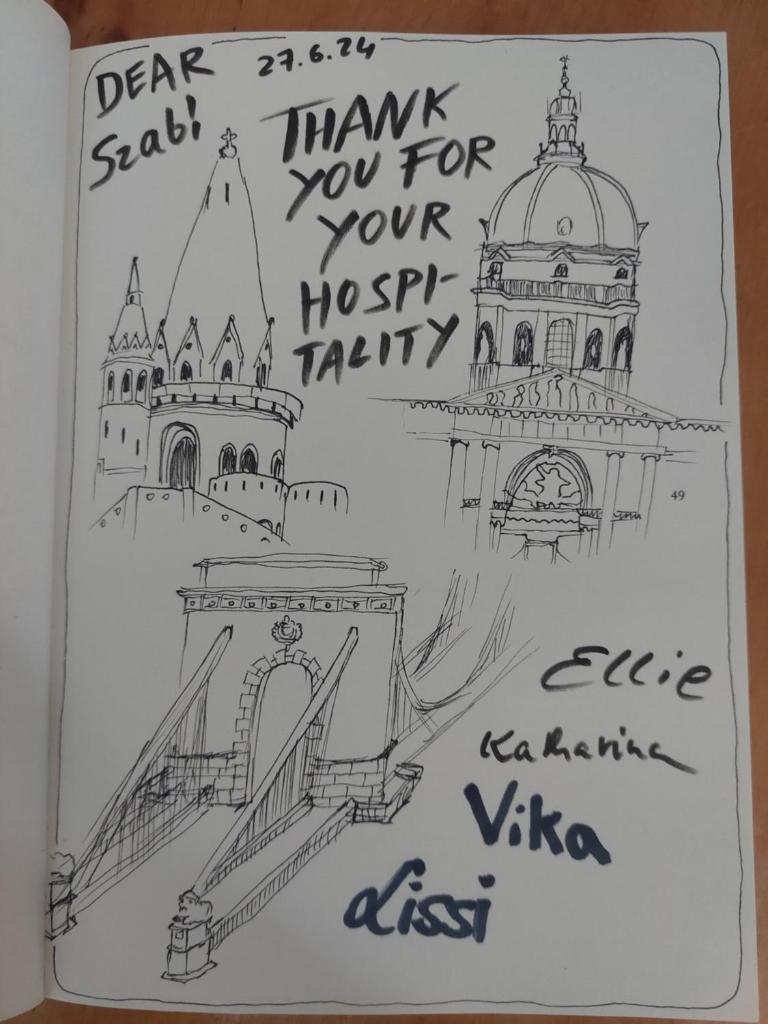 DEAR
Szabi
27.6.24
THANK
YOU FOR
YOUR
HOSPI-
TALITY
49
Ellie
Katharina
Vika
Lissi